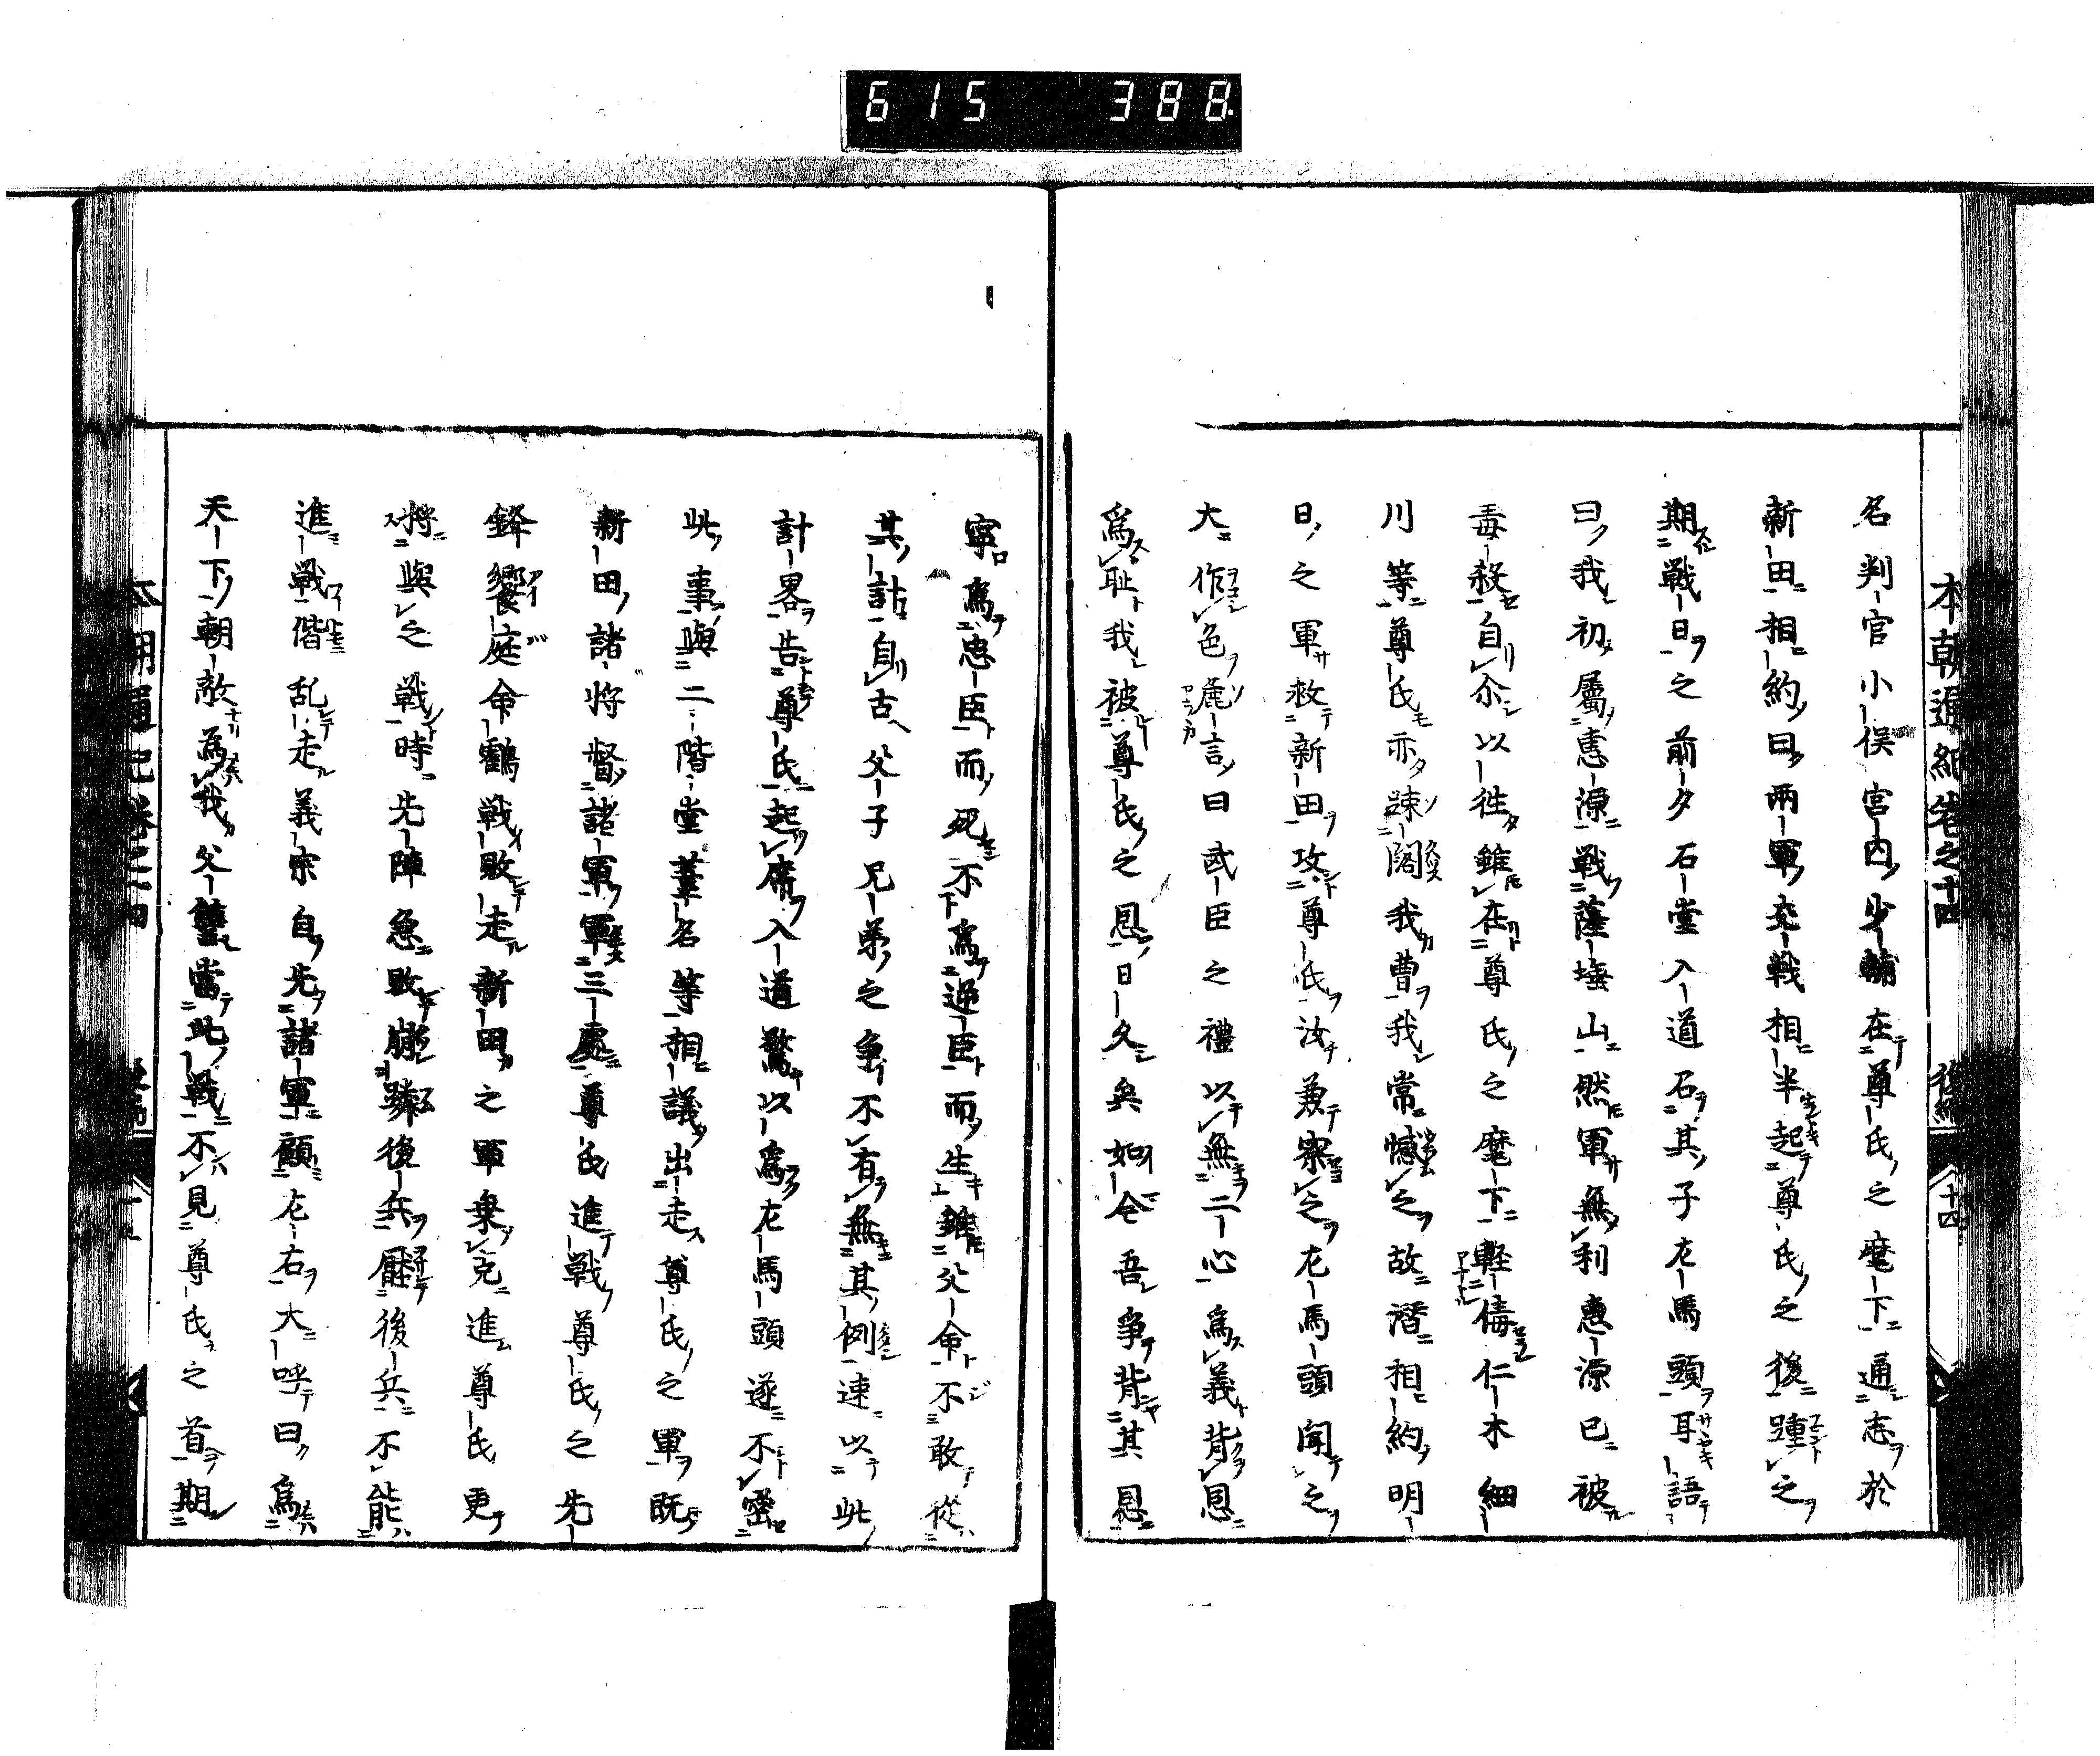 615 388
本朝通紀卷之十四 後編 十四
名判官小俣宮内少輔在尊氏之麾下通志於
新田相約曰兩軍交戰相半起尊氏之後踵之
期戰日之前夕石堂入道石其子左馬頭耳語
曰我初屬惠源戰薩埵山然軍無利惠源已被
毒殺自尒以徃雖在尊氏之麾下輕侮仁木細
川等尊氏亦疎闊我曹我常憾之故潜相約明
日之軍救新田攻尊氏汝兼察之左馬頭聞之
大作色麁言曰武臣之禮以無二心爲義背恩
爲耻我被尊氏之恩日久矣如今吾爭背其恩
寧爲忠臣而死不爲逆臣而生雖父命不敢從
其計自古父子兄弟之争不有無其例速以此
計畧告尊氏起席入道驚以爲左馬頭遂不密
此事與二階堂葦名等相議出走尊氏之軍既
新田諸将督諸軍軍三處尊氏進戰尊氏之先
鋒饗庭命鶴戰敗走新田之軍乗克進尊氏更
将與之戰時先陣急敗崩躪後兵壓後兵不能
進戰偕乱走義宗自先諸軍顧左右大呼曰爲
天下朝敵爲我父讐當此戰不見尊氏之首期